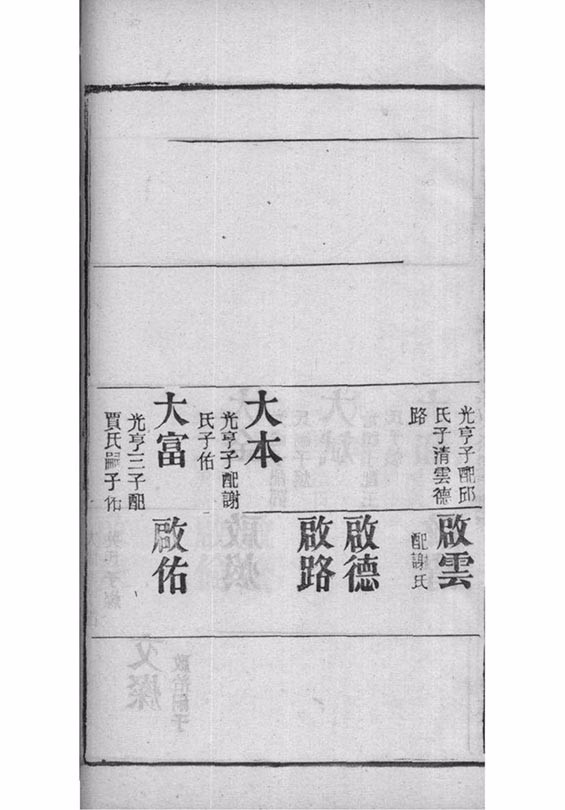 光亨子配邱
氏子清雲德
路
啟雲
配謝氏
啟德
啟路
大本
光亨子配謝
氏子佑
大富
光亨三子配
賈氏嗣子佑
啟佑